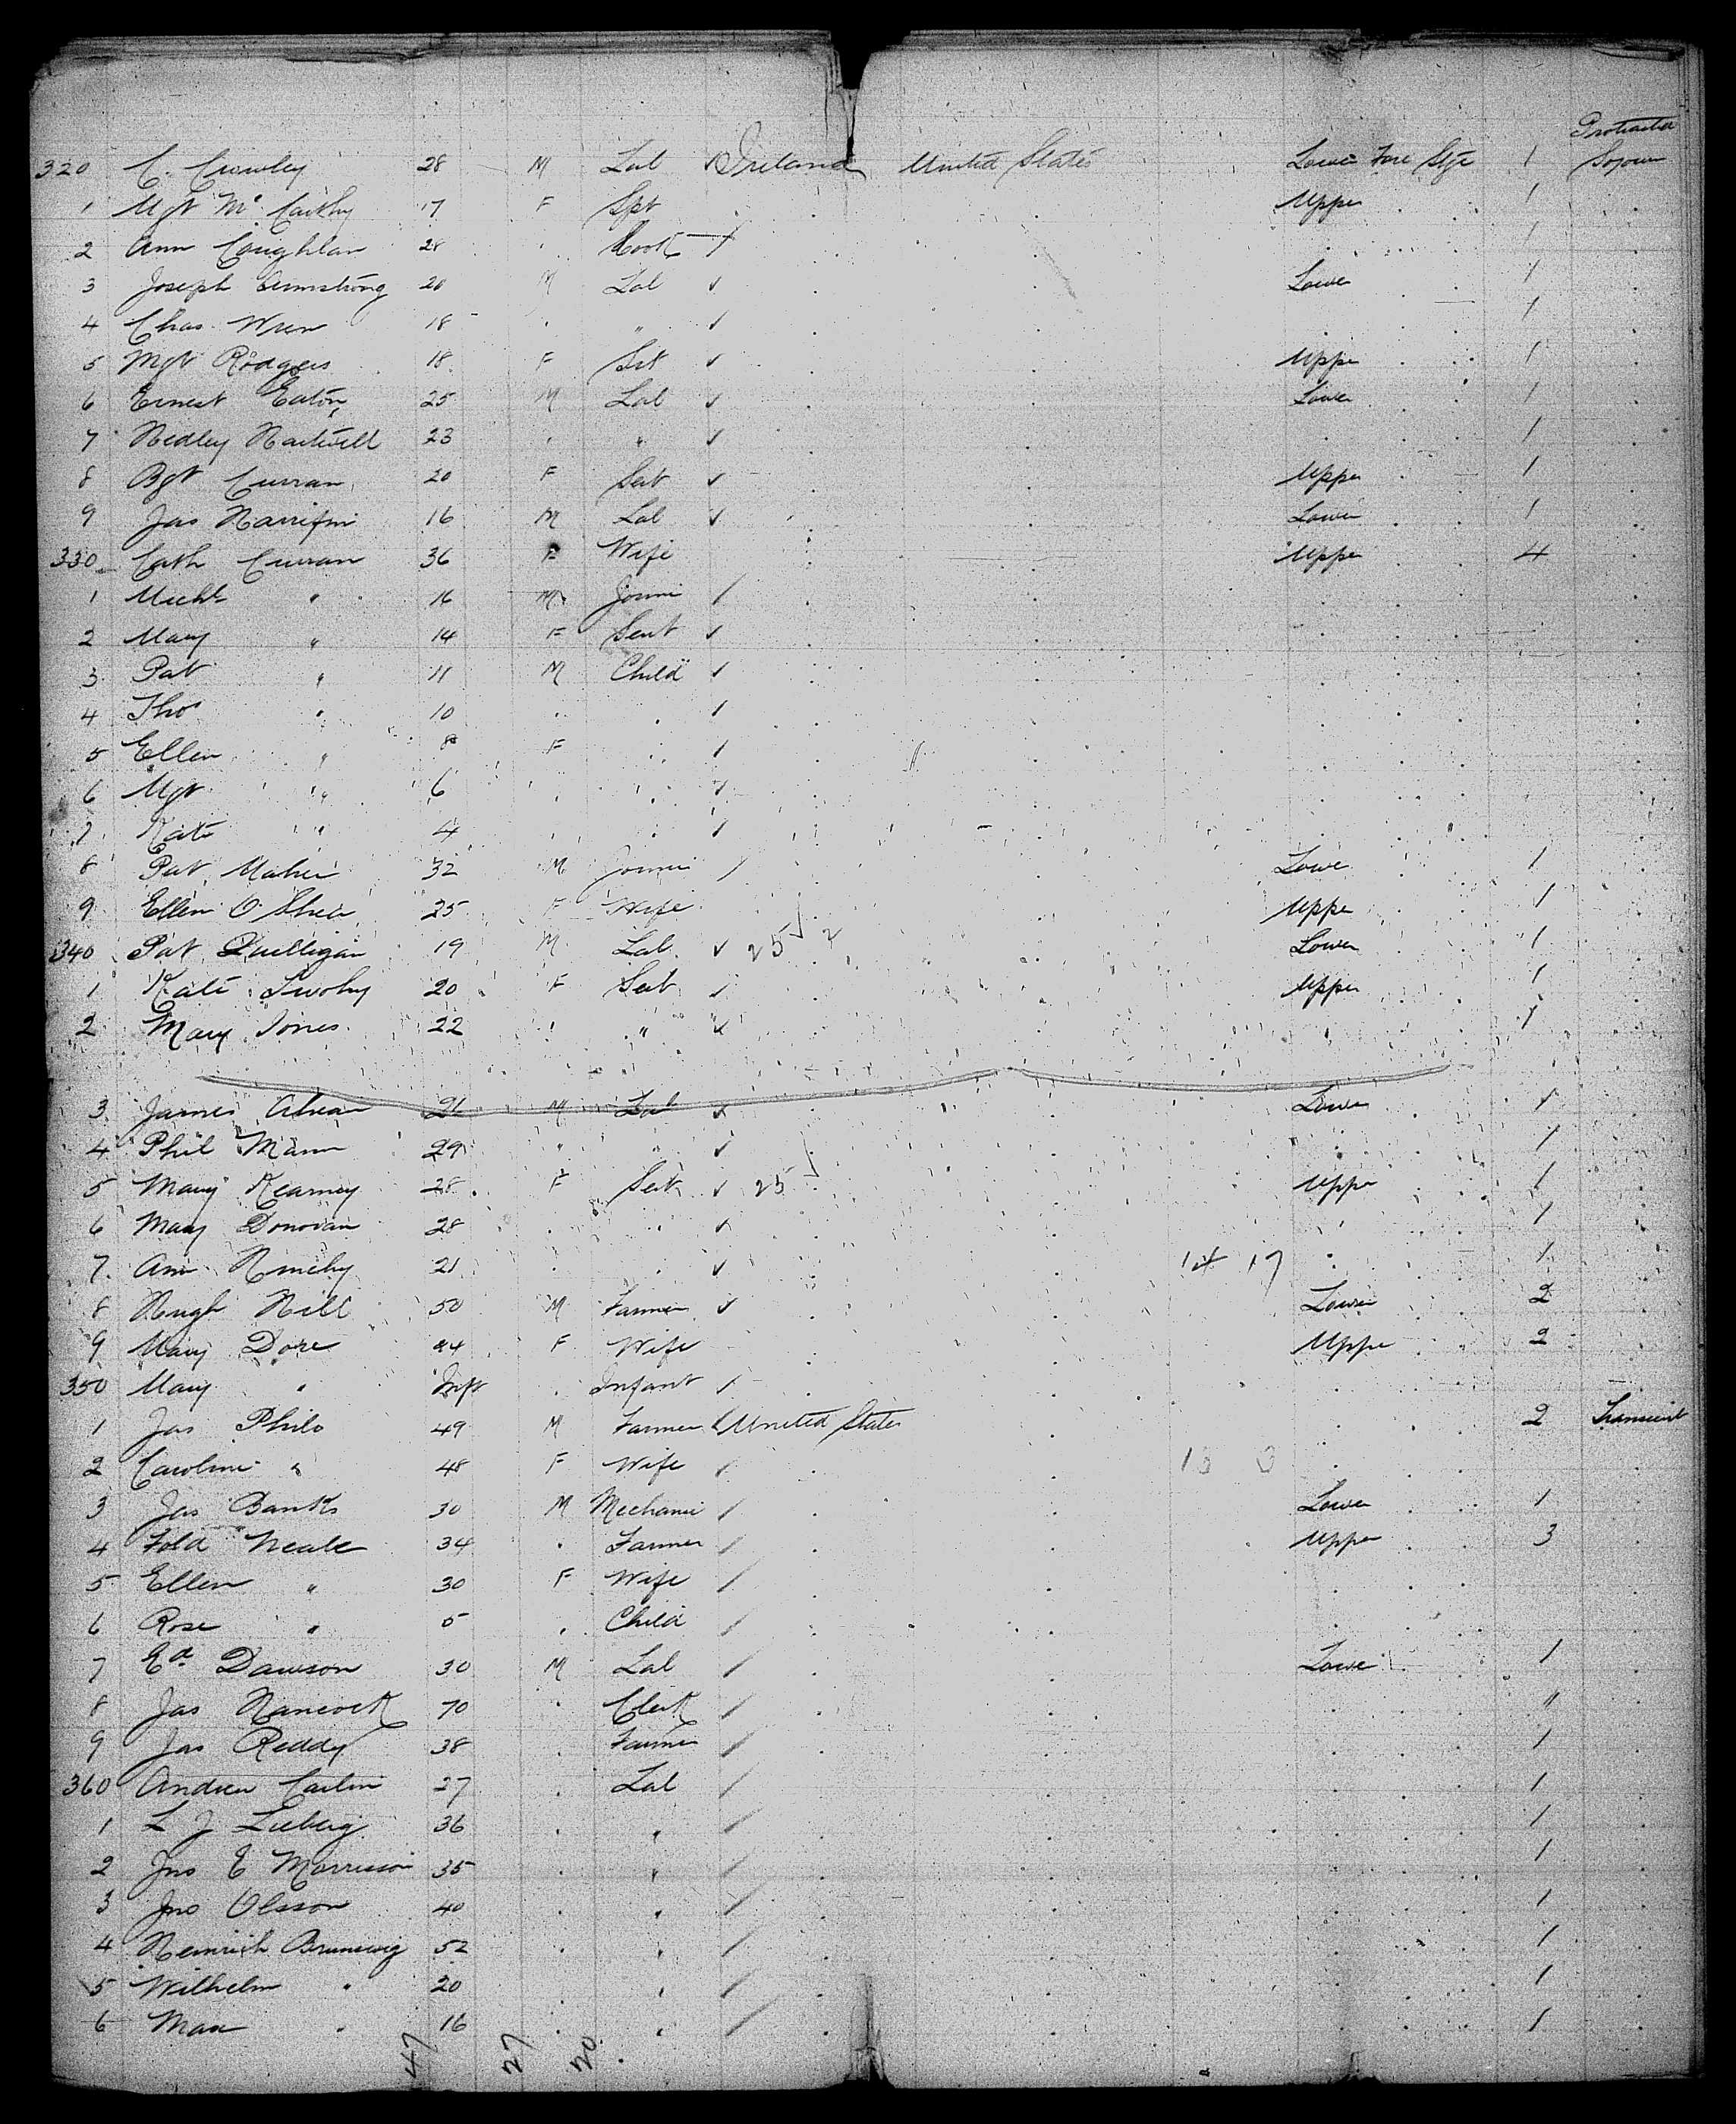 Protracted
320 C. Crowley 28 M Lab Ireland United States Lower Fore Stge 1 Sojourn
1 Mgt McCarthy 17 F Spt Upper 1
2 Ann Coughlan 28 Cook 1
3 Joseph Armstrong 20 M Lab Lower 1
4 Chas Wren 18 " 1
5 Mgt Rodgers 18 F Srt Upper 1
6 Ernest Eaton 25 M Lab Lower 1
7 Hedley Hartwell 23 " 1
8 Bgt Curran 20 F Sert Upper 1
9 Jas 16 M Lab Lower 1
330 Cath Curran 36 F Wife Upper 4
1 Michl " 16 M Joiner
2 Mary " 14 F Sevt
3 Pat " 11 M Child
4 Thos " 10
5 Ellen " 8 F
6 Mgt " 6
7 Kate " 4
8 Pat Maher 32 M Joiner Lowe 1
9 Ellen O'Shea 25 F Wife Uppe 1
340 Pat Quilligan 19 M Lab 25 2 Lower 1
1 Kate Twohy 20 F Sert Upper 1
2 Mary Jones 22 " " 1
3 James Ahearn 21 M Lab Lower 1
4 Phil Mann 29 " " 1
5 Mary Kearney 28 F Sert 25 Upper 1
6 Mary Donovan 28 1
7 Ann 21 14 17 1
8 Hugh Hill 50 M Farmer Lower 2
9 Mary Dore 24 F Wife Upper 2
350 Mary " Inft Infant
1 Jas Philo 49 M Farmer United States 2 Transient
2 Caroline " 48 F Wife 13 3
3 Jas Banks 30 M Mechanic Lower 1
4 Neale 34 Farmer Upper 3
5 Ellen " 30 F Wife
6 Rose " 5 Child
7 Ed Dawson 30 M Lab Lower 1
8 Jas Hancock 70 Clerk "
9 Jas Reddy 38 Farmer 1
360 Andrew Carlin 27 Lab 1
1 L J Lieberg 36 " 1
2 Jno E Morrison 35 " 1
3 Jno Olsson 40 " 1
4 Heinrich Brunswig 52 " 1
5 Wilhelm " 20 " 1
6 Max " 16 " 1
47 27 20